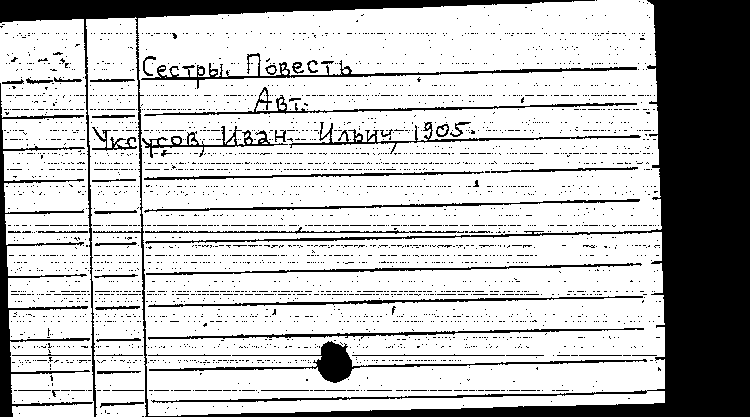 Сестры. Повесть
Авт.
Уксусов, Иван, Ильич, 1905.